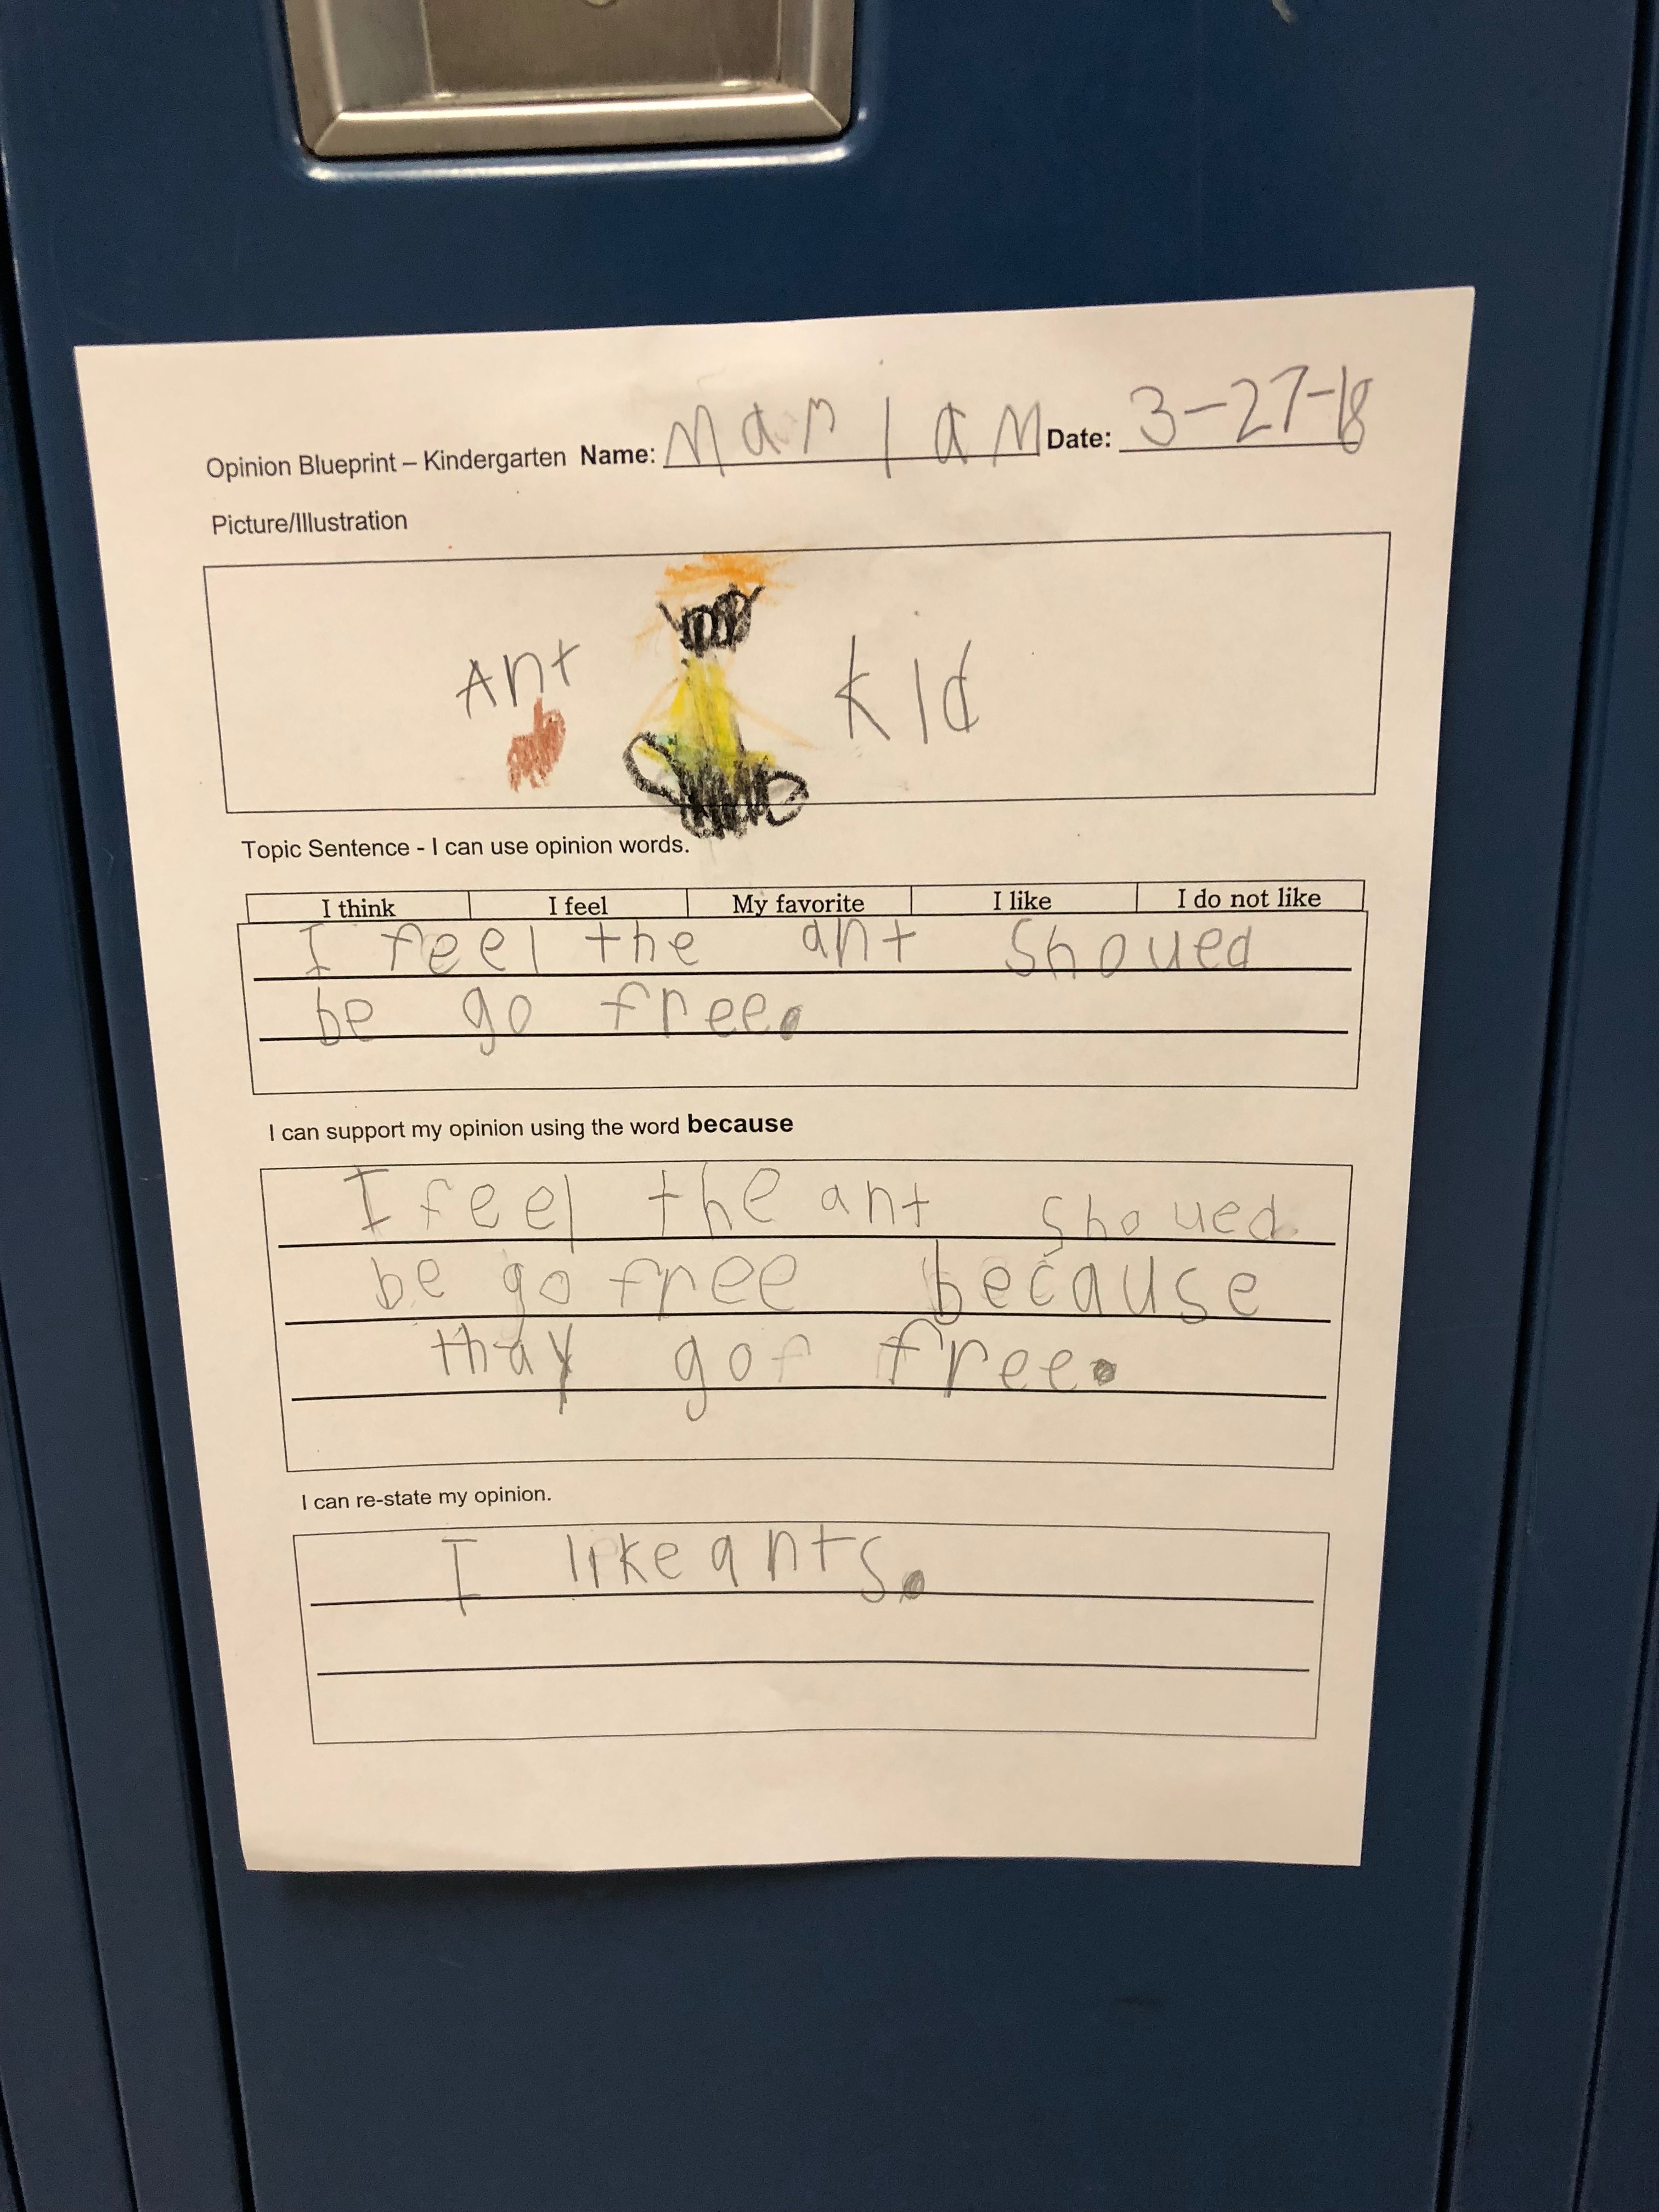 Opinion Blueprint – Kindergarten Name: Mariam Date: 3-27-18
Picture/Illustration
Ant kid
Topic Sentence - I can use opinion words.
I think I feel My favorite I like I do not like
I feel the ant shoued
be go free.
I can support my opinion using the word because
I feel the ant shoued
be go free because
thay gof free.
I can re-state my opinion.
I like ants.